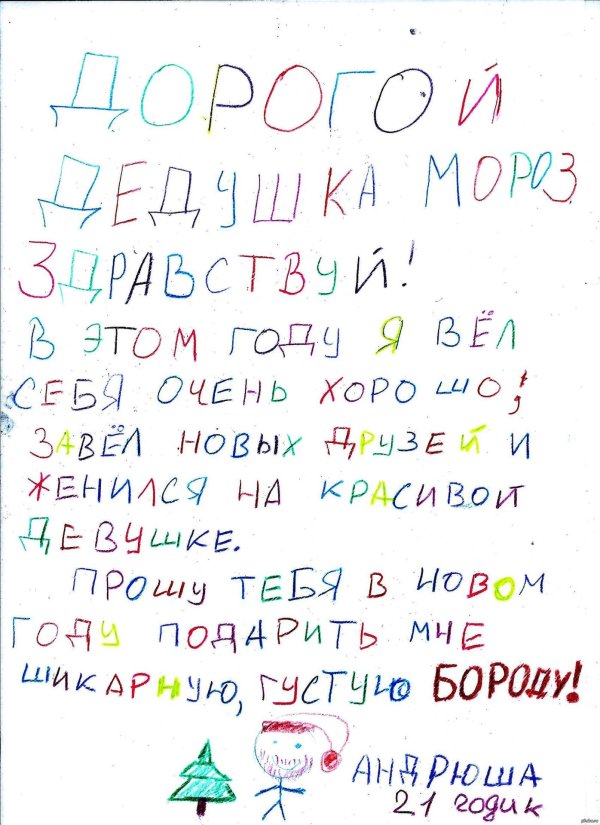 ДОРОГОЙ
ДЕДУШКА МОРОЗ
ЗДРАВСТВУЙ!
В ЭТОМ ГОДУ Я ВЁЛ
СЕБЯ ОЧЕНЬ ХОРОШО;
ЗАВЁЛ НОВЫХ ДРУЗЕЙ И
ЖЕНИЛСЯ НА КРАСИВОЙ
ДЕВУШКЕ.
ПРОШУ ТЕБЯ В НОВОМ
ГОДУ ПОДАРИТЬ МНЕ
ШИКАРНУЮ, ГУСТУЮ БОРОДУ!
АНДРЮША
21 годик
pikabu.ru